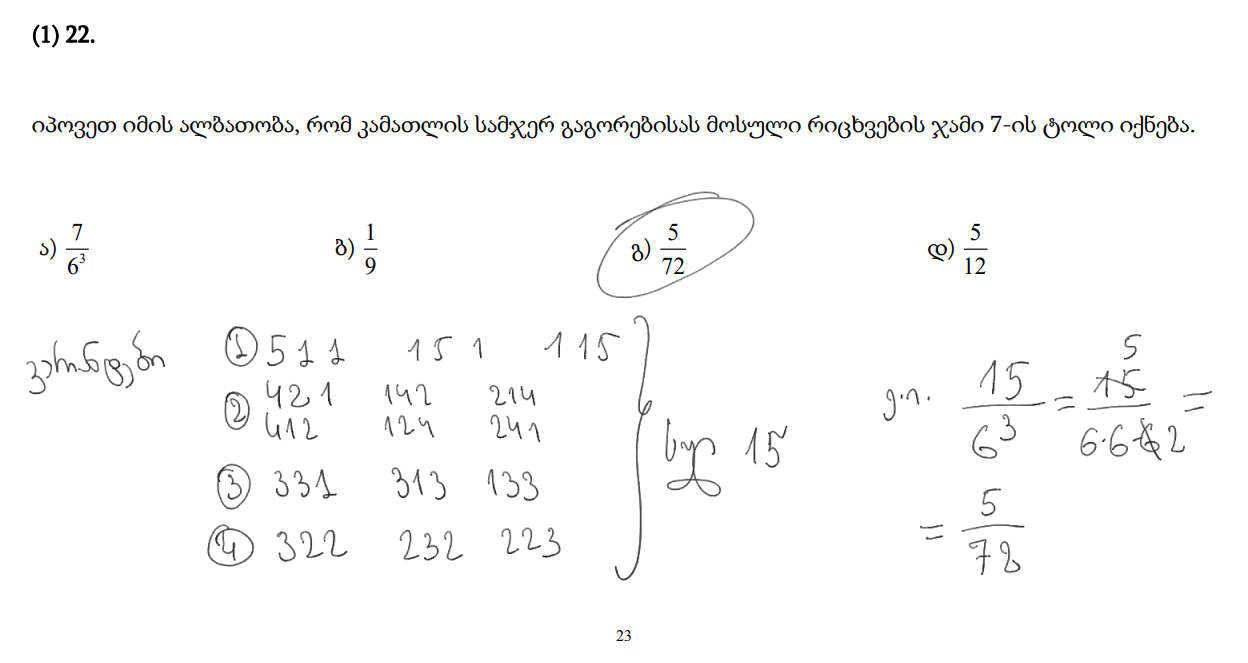 (1) 22.
იპოვეთ იმის ალბათობა, რომ კამათლის სამჯერ გაგორებისას მოსული რიცხვების ჯამი 7-ის ტოლი იქნება.
ა) 7/6³ ბ) 1/9 გ) 5/72 დ) 5/12
ვარიანტები ① 511 151 115
② 421 142 214
412 124 241
③ 331 313 133
④ 322 232 223
სულ 15
ე.ი. 15/6³ = 15/6·6·6 5 2 =
= 5/72
23